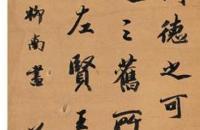 德之可
之舊所
左賢王
柳南書